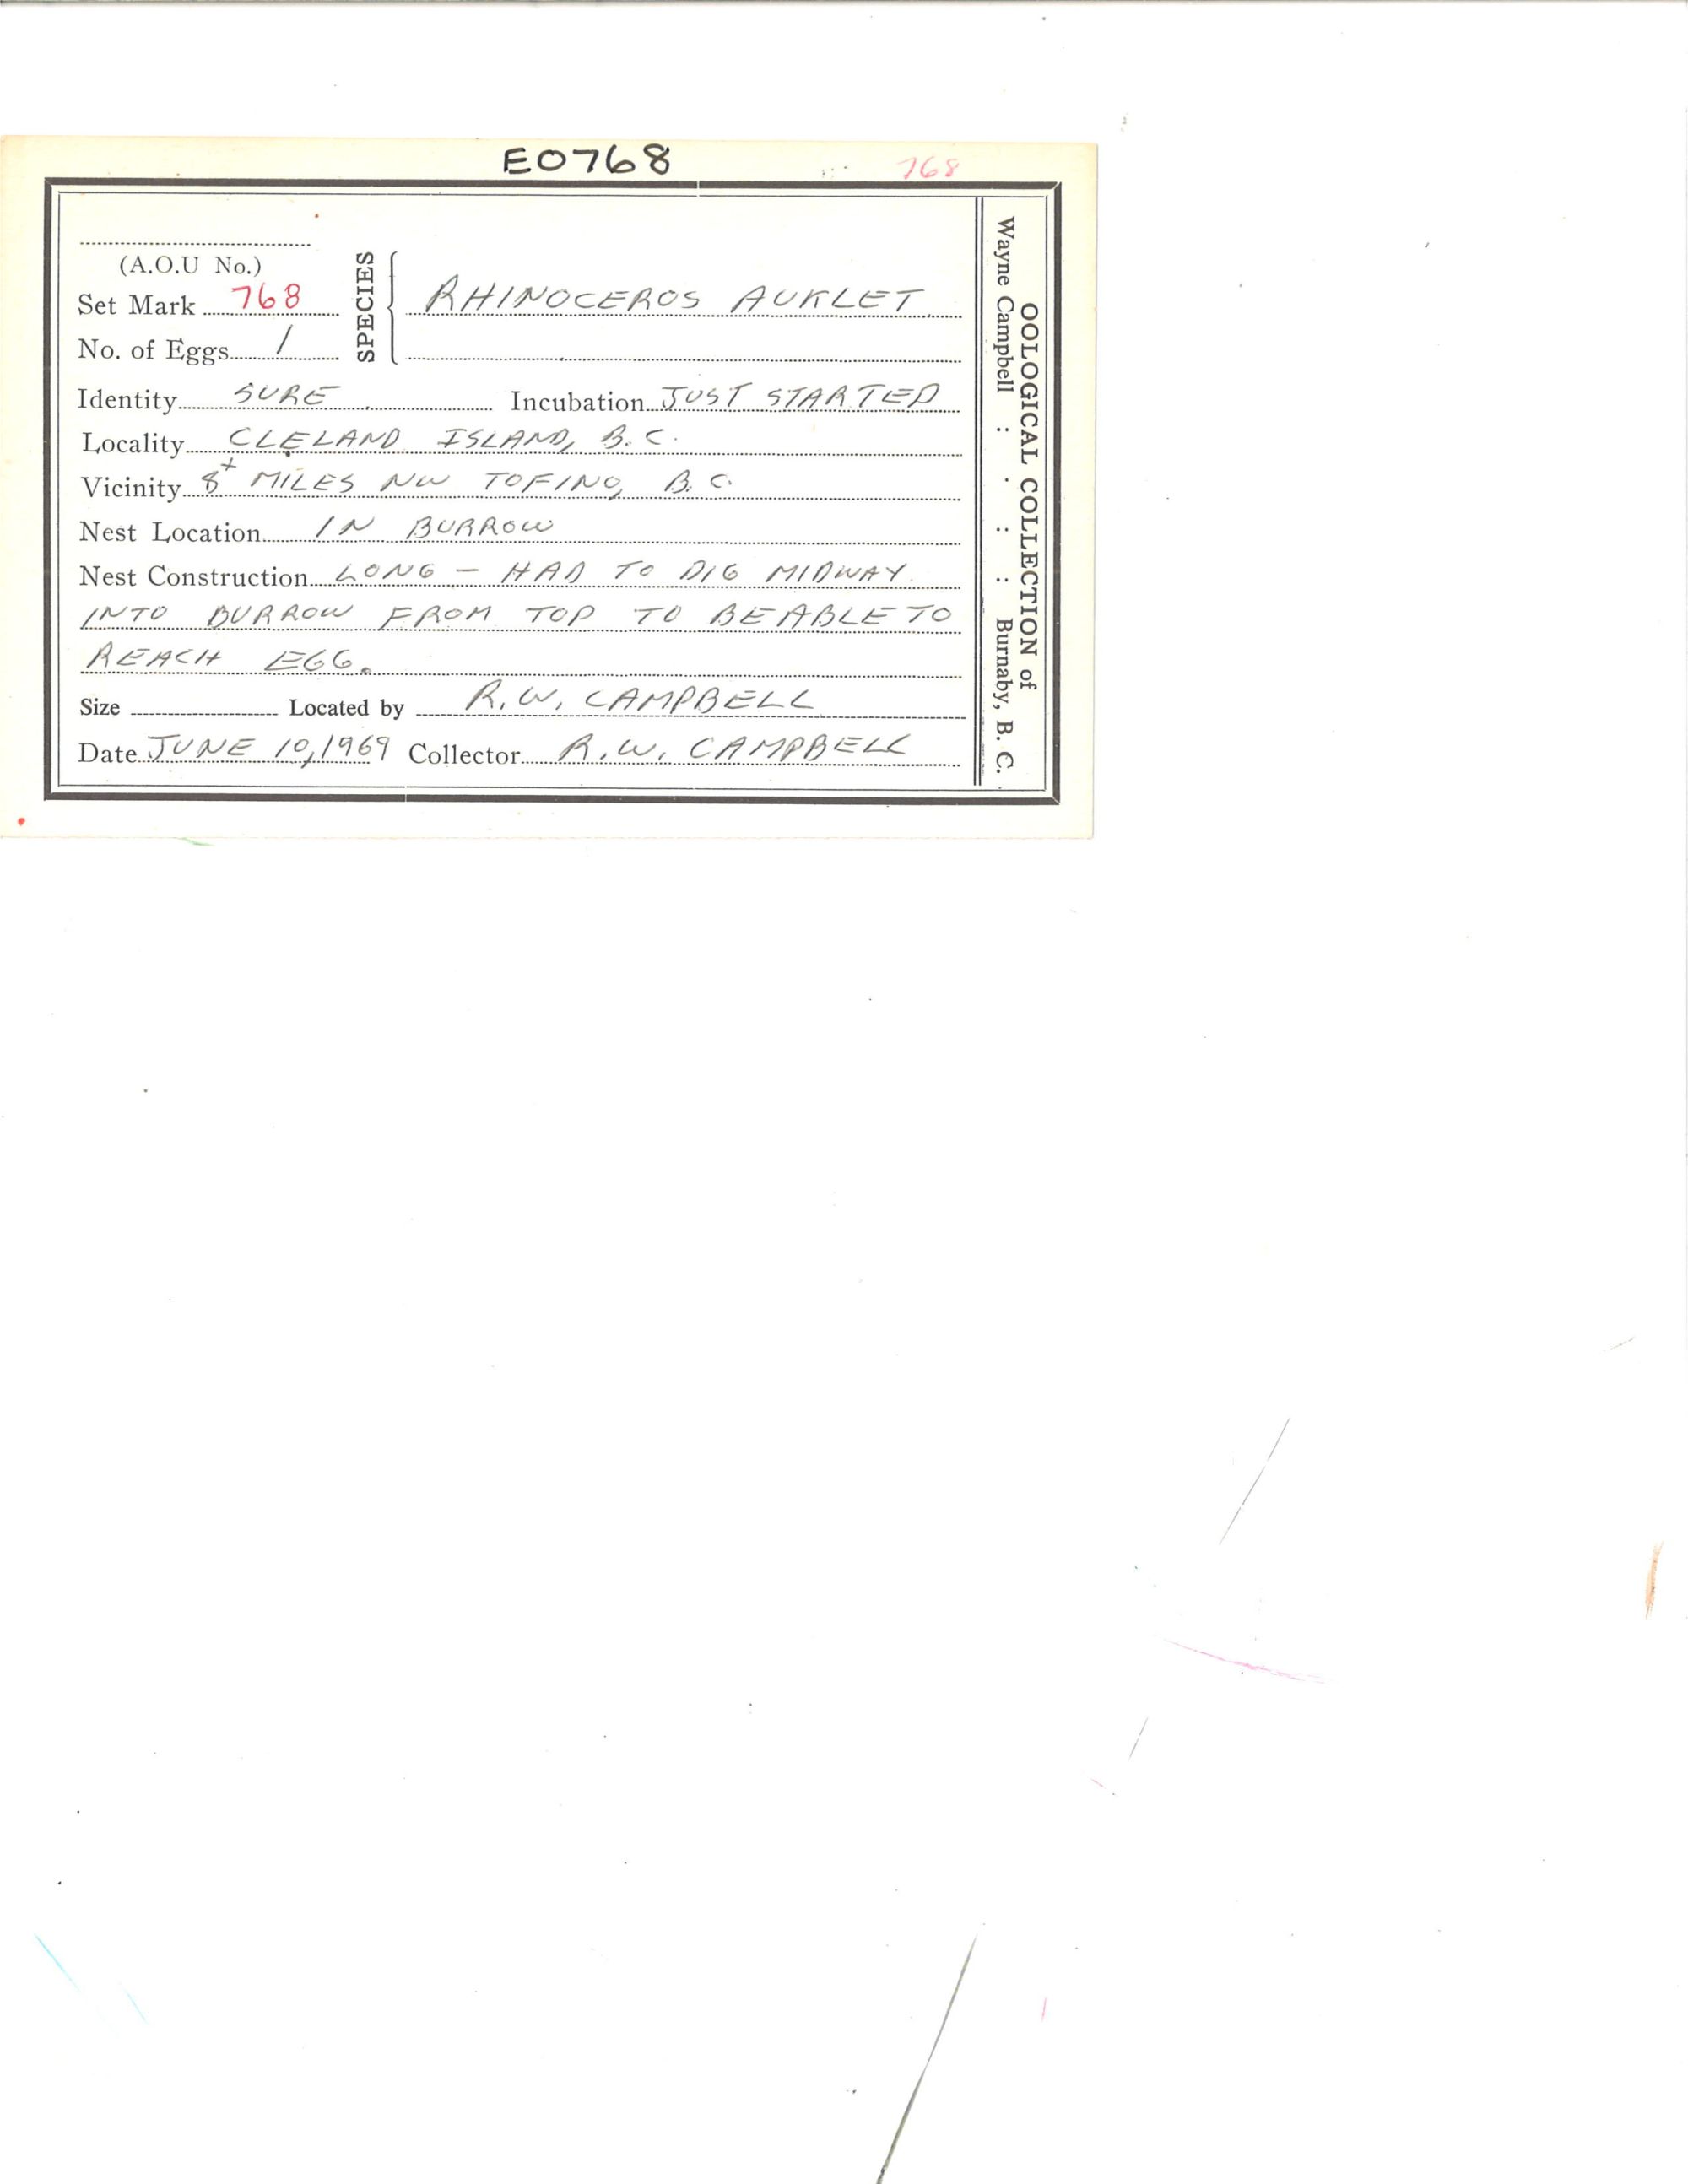 E0768
768
(A.O.U No.)
Set Mark 768
No. of Eggs 1
SPECIES
RHINOCEROS AUKLET
Identity SURE Incubation JUST STARTED
Locality CLELAND ISLAND, B.C.
Vicinity 8+ MILES NW TOFINO, B.C.
Nest Location IN BURROW
Nest Construction LONG — HAD TO DIG MIDWAY
INTO BURROW FROM TOP TO BE ABLE TO
REACH EGG.
Size Located by R.W. CAMPBELL
Date JUNE 10, 1969 Collector R.W. CAMPBELL
OOLOGICAL COLLECTION of
Wayne Campbell : : : Burnaby, B. C.